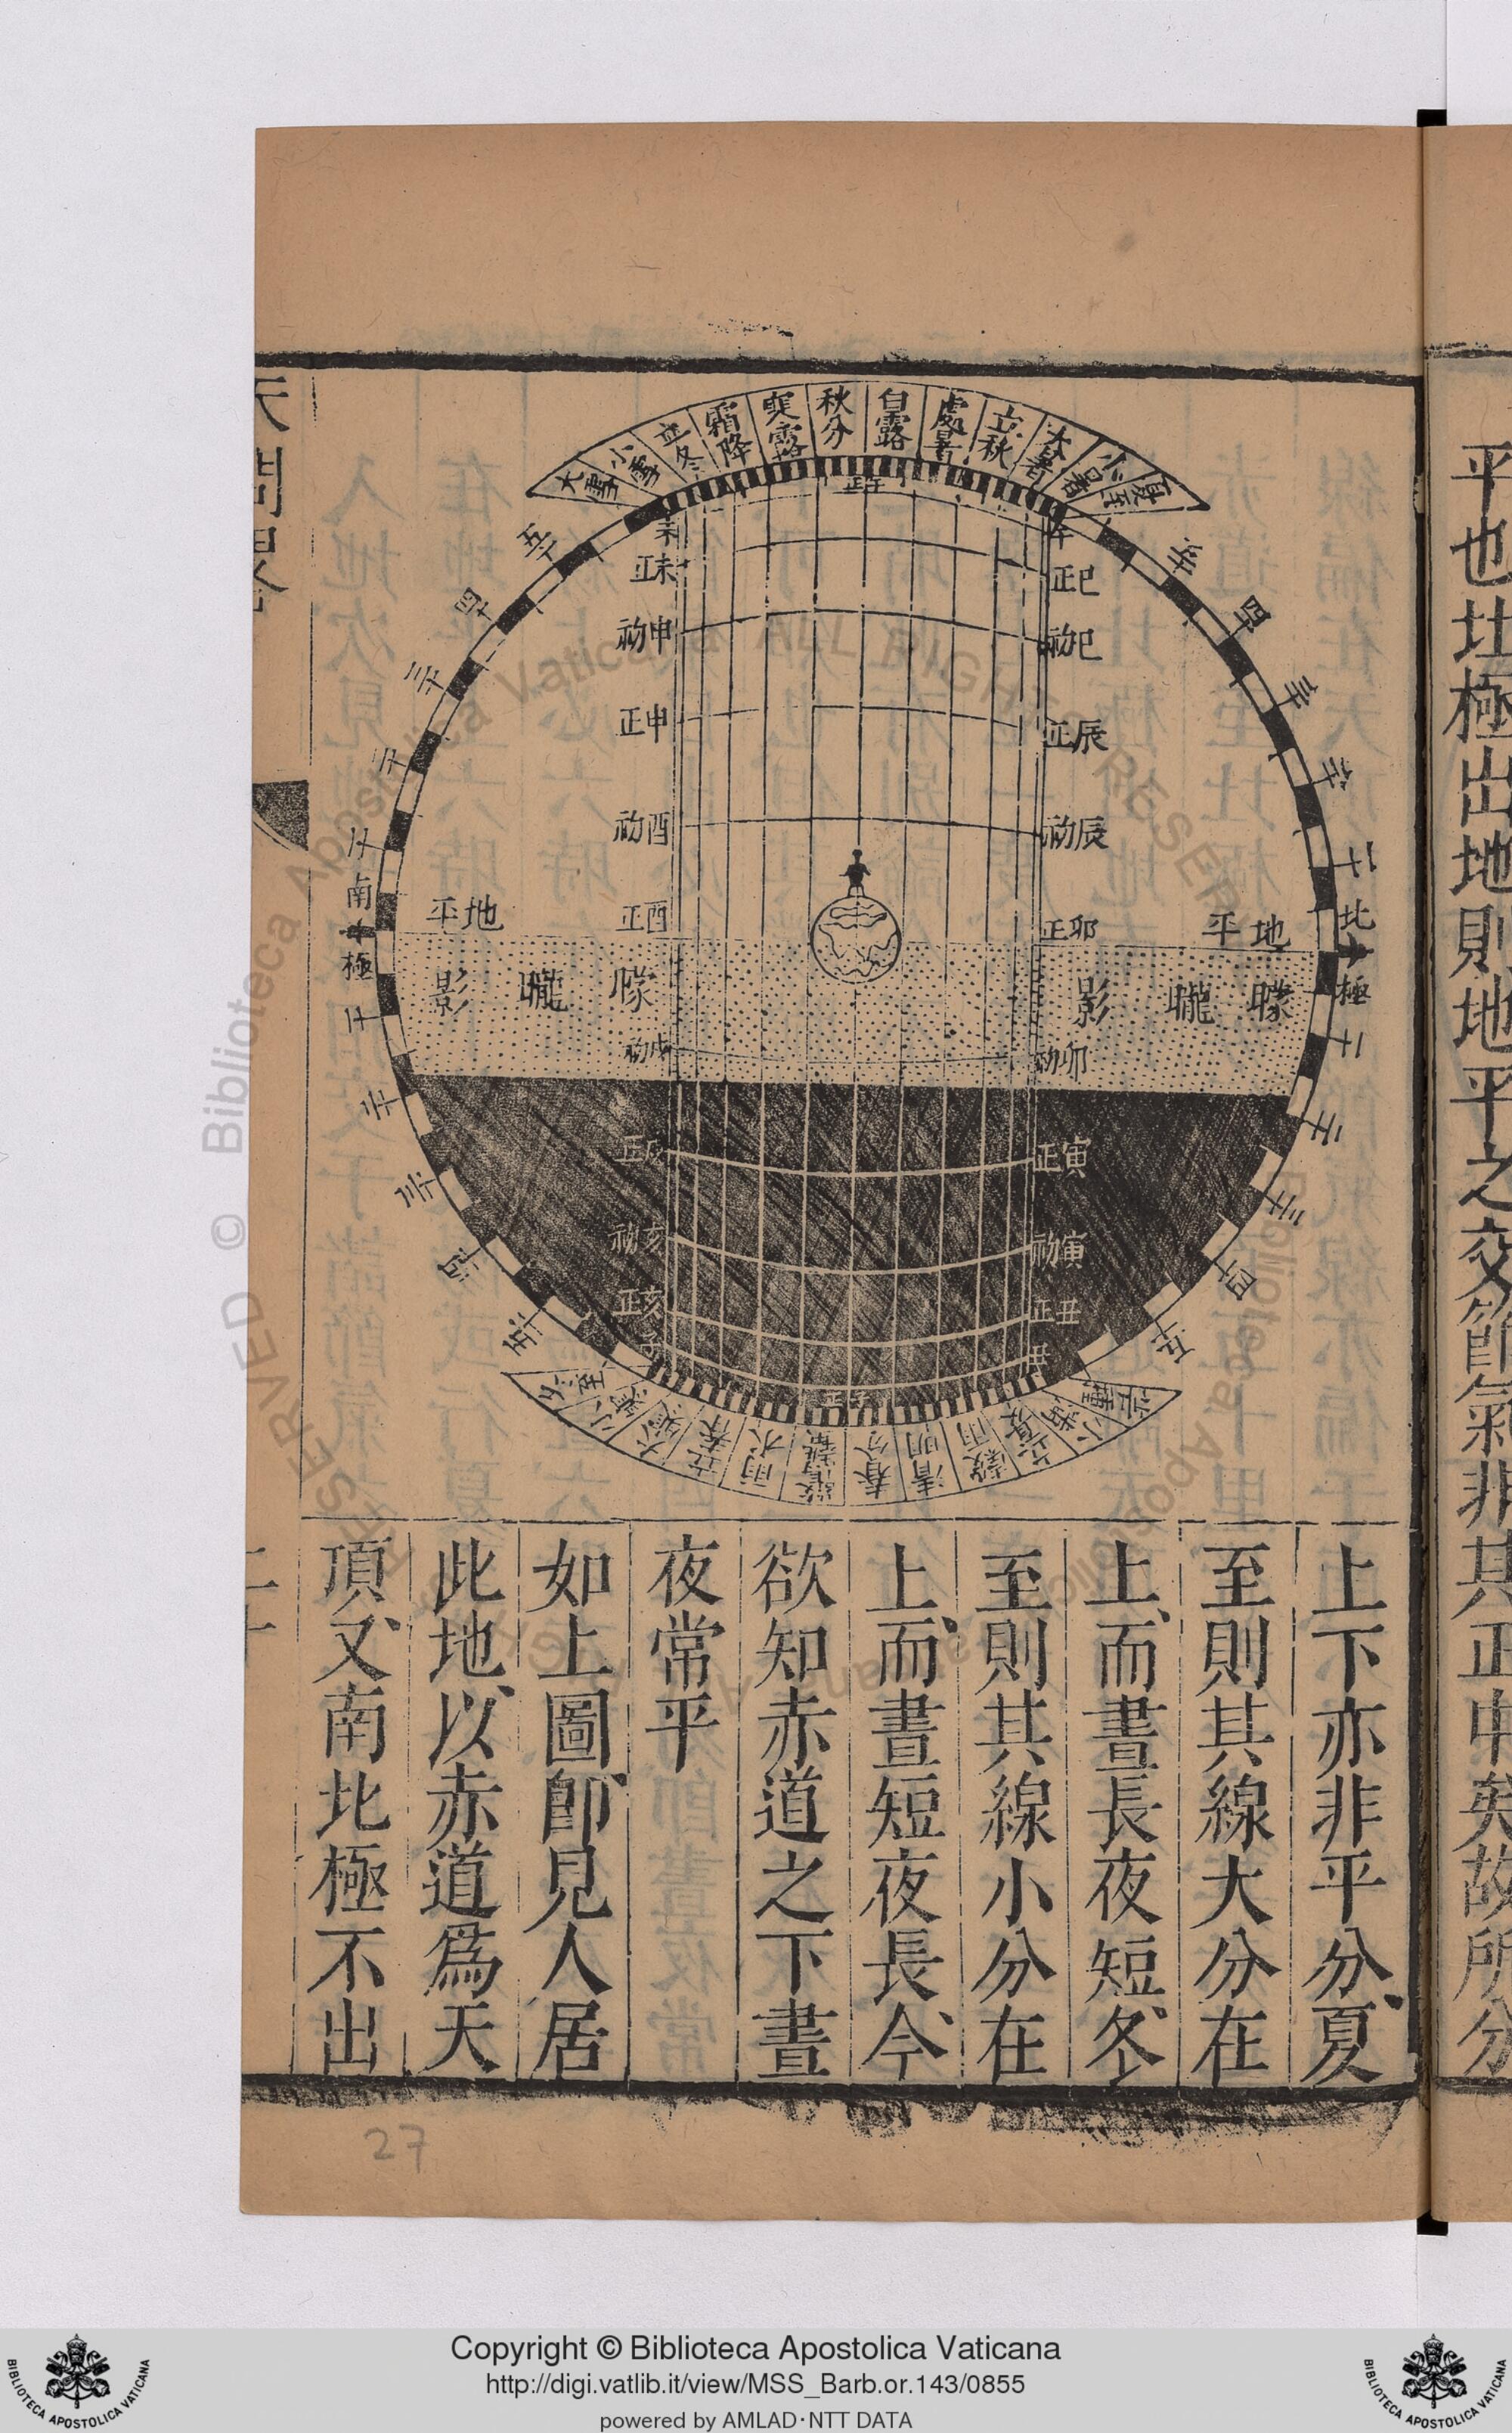 平也北極出地則地平之交節氣非其正中矣故所分
大雪
小雪
立冬
霜降
寒露
秋分
白露
處暑
立秋
大暑
小暑
夏至
正午
未
午
正未
正巳
初申
初巳
正申
正辰
初酉
初辰
正酉
正卯
平地
平地
南極
北極
影朧朦
影朧朦
初戌
初卯
正戌
正寅
初亥
初寅
正亥
正丑
丑
冬至
小寒
大寒
立春
雨水
驚蟄
春分
清明
穀雨
立夏
小滿
芒種
上下亦非平分夏
至則其線大分在
上而晝長夜短冬
至則其線小分在
上而晝短夜長今
欲知赤道之下晝
夜常平
如上圖即見人居
此地以赤道為天
頂又南北極不出
天問畧
27
Copyright © Biblioteca Apostolica Vaticana
http://digi.vatlib.it/view/MSS_Barb.or.143/0855
powered by AMLAD·NTT DATA
BIBLIOTECA APOSTOLICA VATICANA
BIBLIOTECA APOSTOLICA VATICANA